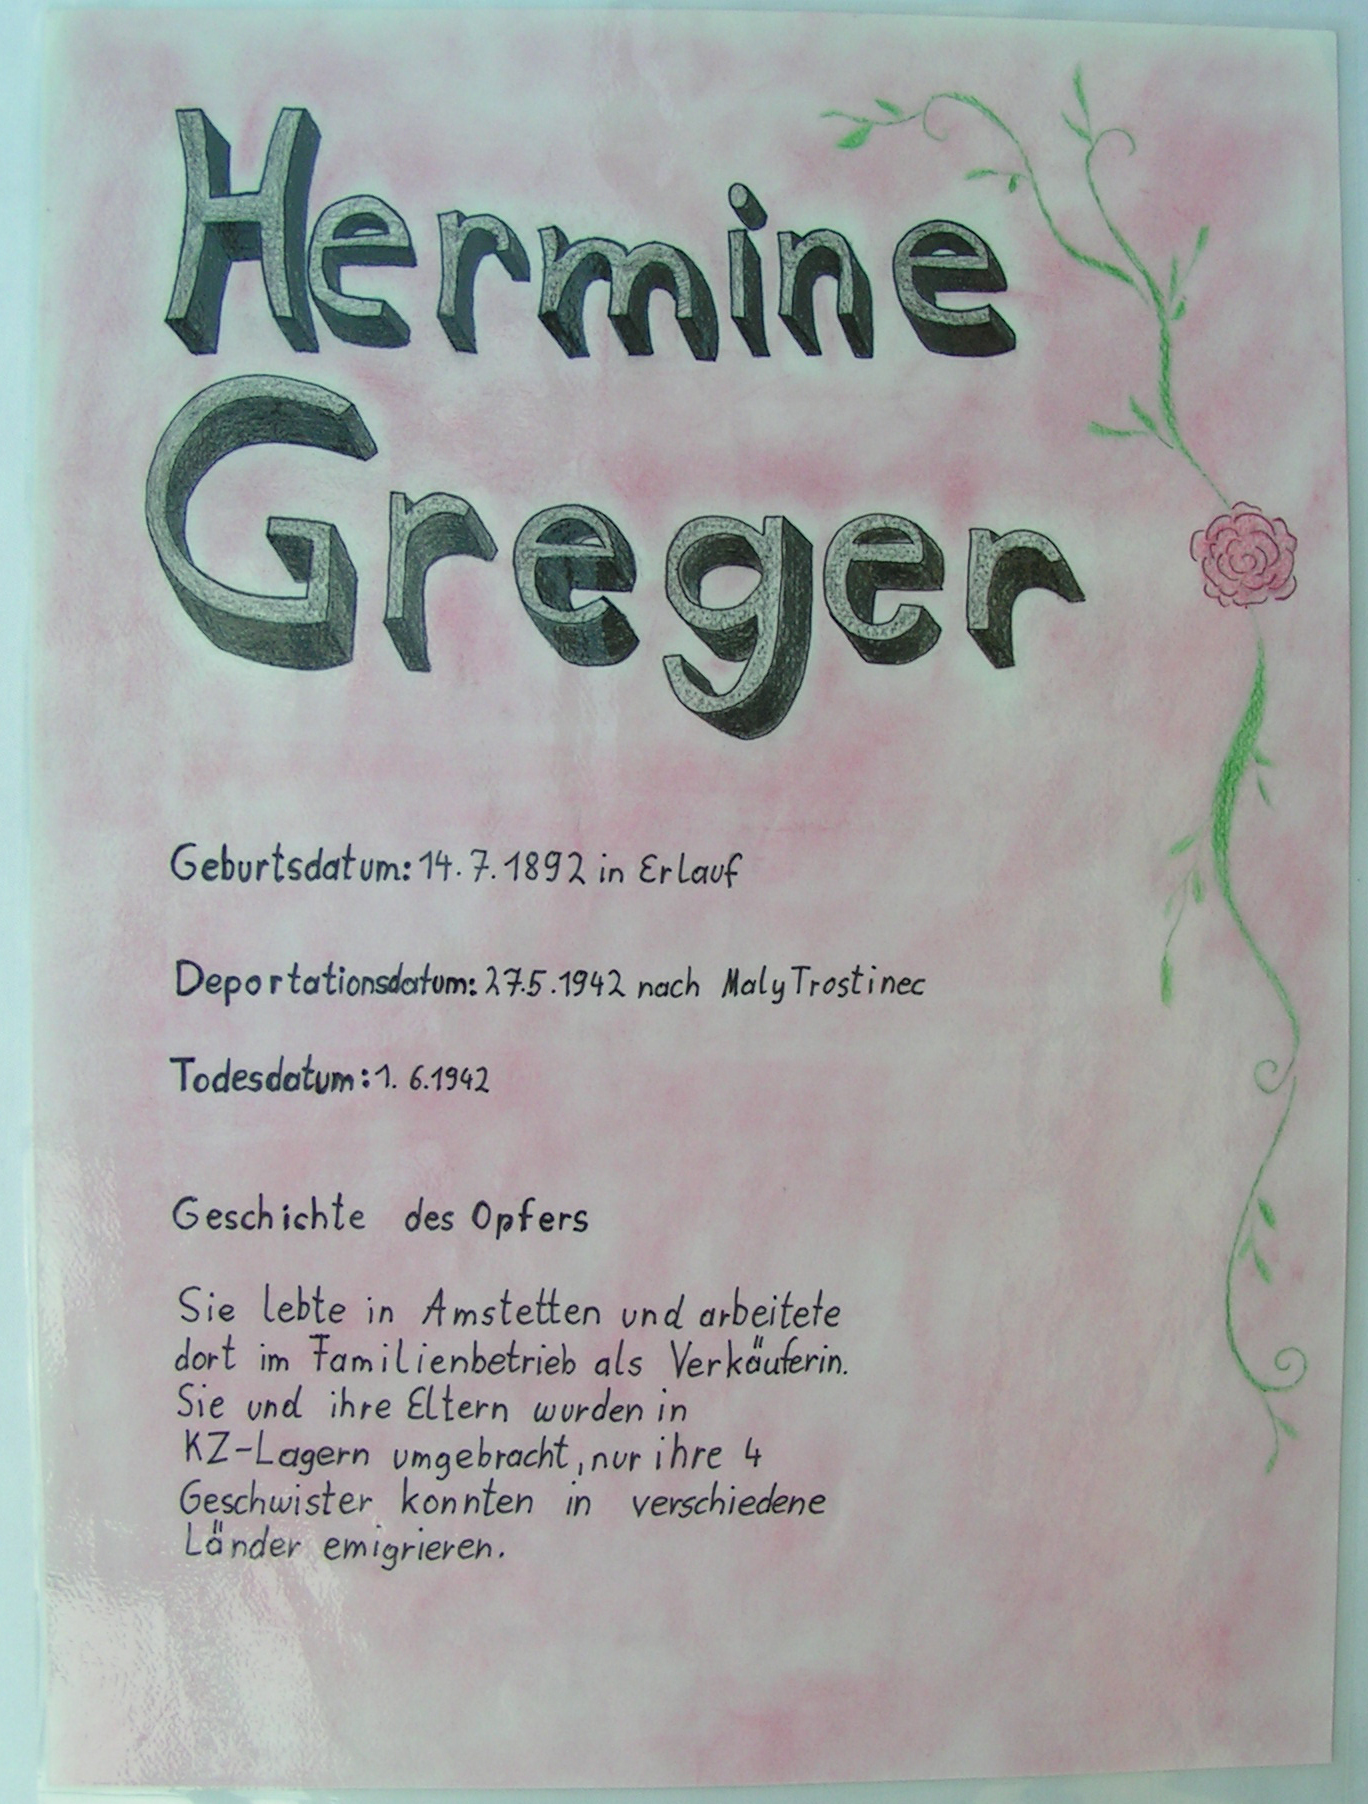 Hermine
Greger
Geburtsdatum: 14. 7. 1892 in Erlauf
Deportationsdatum: 27.5.1942 nach Maly Trostinec
Todesdatum: 1. 6.1942
Geschichte des Opfers
Sie lebte in Amstetten und arbeitete
dort im Familienbetrieb als Verkäuferin.
Sie und ihre Eltern wurden in
KZ-Lagern umgebracht, nur ihre 4
Geschwister konnten in verschiedene
Länder emigrieren.